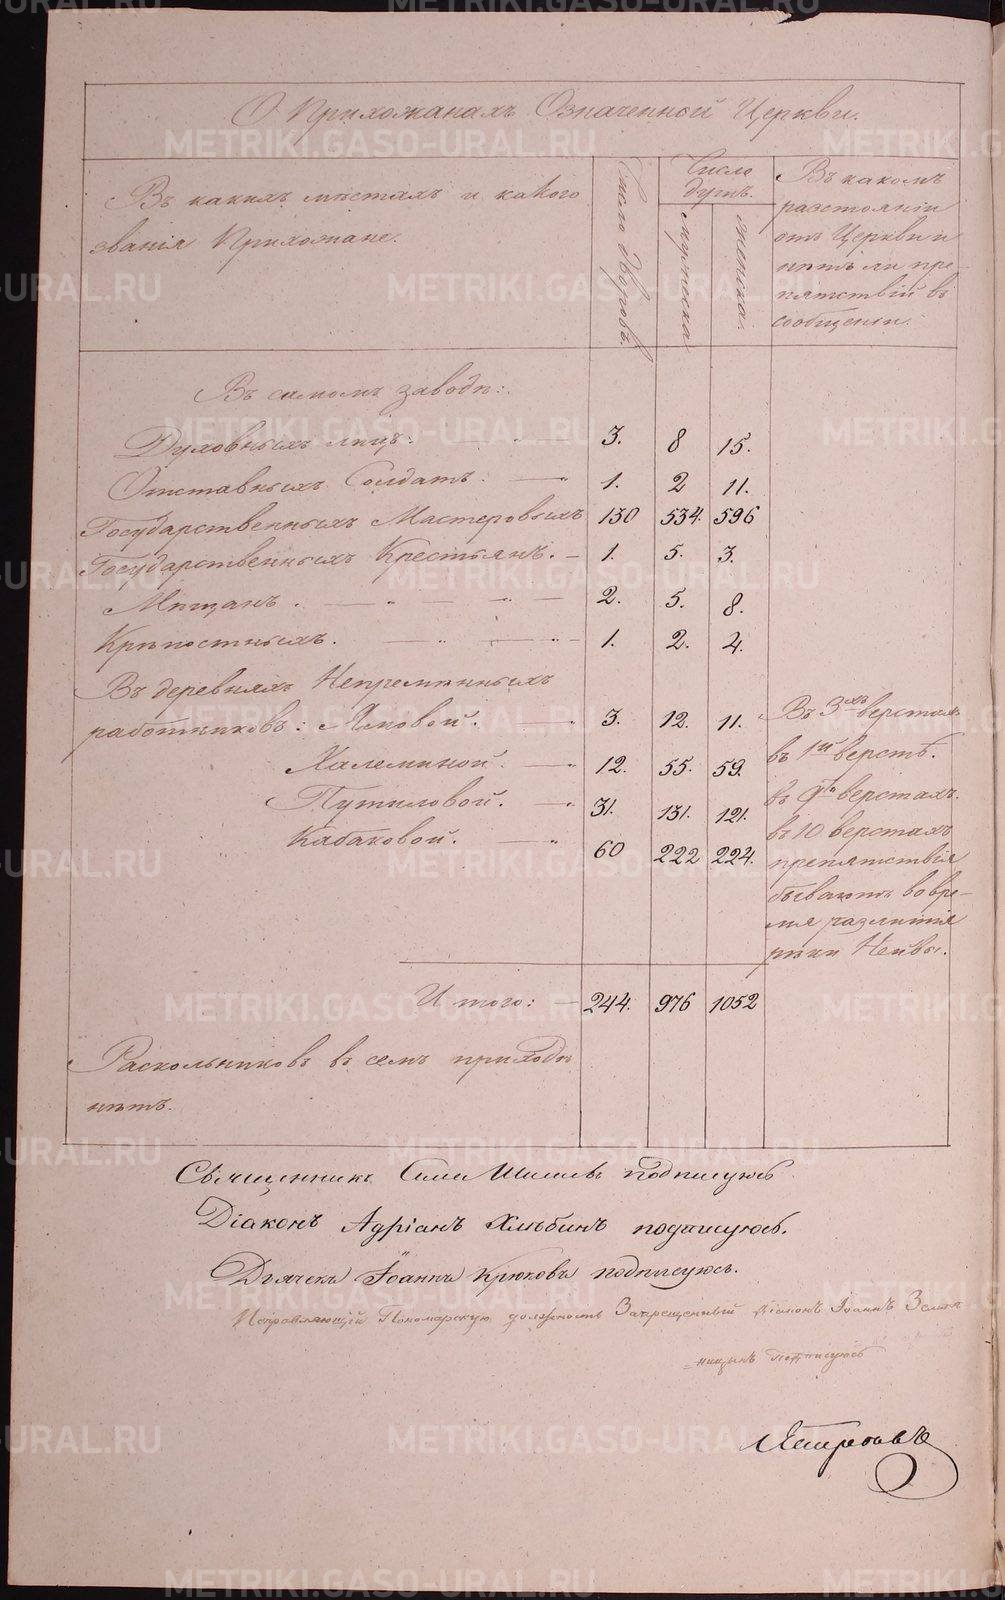 О Прихожанахъ Означенной Церкви.
Въ какихъ мѣстахъ и какого
званія Прихожане.
Число дворовъ.
Число
душъ.
мужеска
женска.
Въ какомъ
разстояніи
отъ Церкви и
нѣтъ ли пре-
пятствій въ
сообщеніи.
Въ самомъ заводѣ:
Духовныхъ лицъ: 3. 8 15.
Отставныхъ Солдатъ. 1. 2 11.
Государственныхъ Мастеровыхъ 130 534. 596
Государственныхъ Крестьянъ. 1. 5. 3.
Мѣщанъ. 2. 5. 8.
Крѣпостныхъ. 1. 2. 4.
Въ деревняхъ Непремѣнныхъ
работниковъ: Ямовой. 3. 12. 11. Въ 3хъ верстахъ
Халеминой. 12. 55. 59. въ 1й верстѣ.
Путиловой. 31. 131. 121. въ 9ть верстахъ.
Кабаковой. 60 222 224. въ 10 верстахъ
препятствія
бываютъ во вре-
мя разлитія
рѣки Нейвы.
Итого: 244. 976 1052
Раскольниковъ въ семъ приходѣ
нѣтъ.
Священникъ подписуюсь
Діаконъ Адріанъ Хлѣбинъ подписуюсь.
Дьячекъ Іоаннъ Крюковъ подписуюсь.
Исправляющій Пономарскую должность Запрещенный Діаконъ Іоаннъ
подписуюсь
METRIKI.GASO-URAL.RU